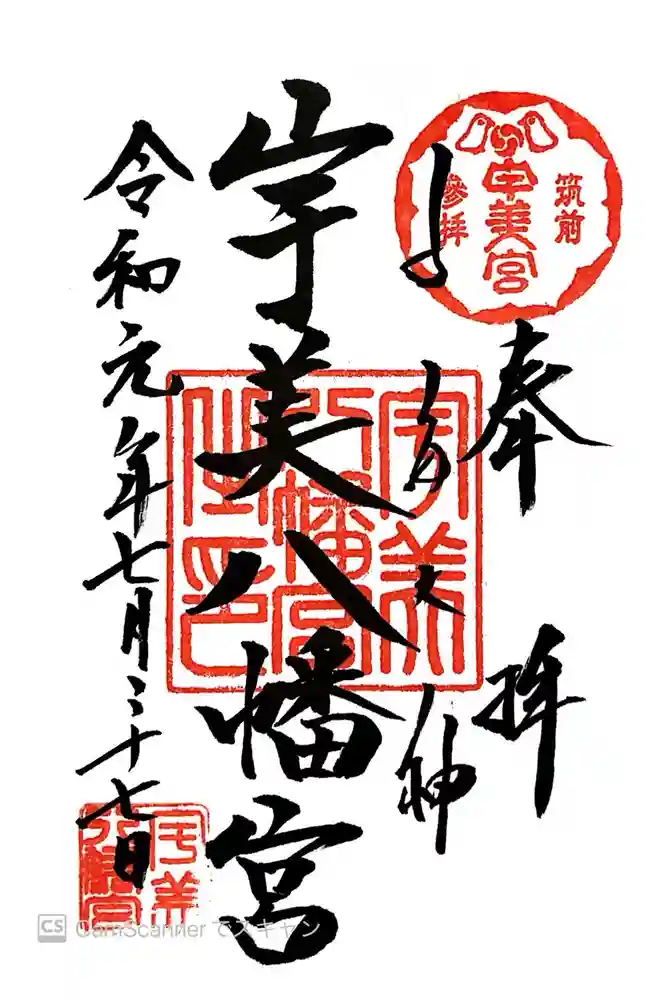 筑前
宇美宮
參拝
奉拝
大神
宇美八幡宮
令和元年七月二十七日
宇美
八幡宮
宇美
八幡宮
CS CamScanner でスキャン